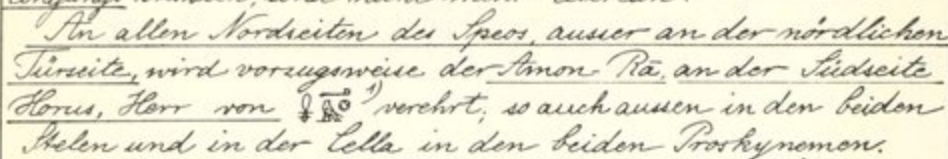 An allen Nordseiten des Speos, ausser an der nördlichen
Türseite, wird vorzugsweise der Amon Rā, an der Südseite
Horus, Herr von ¹⁾ verehrt, so auch aussen in den beiden
Stelen und in der Cella in den beiden Proskynemen.